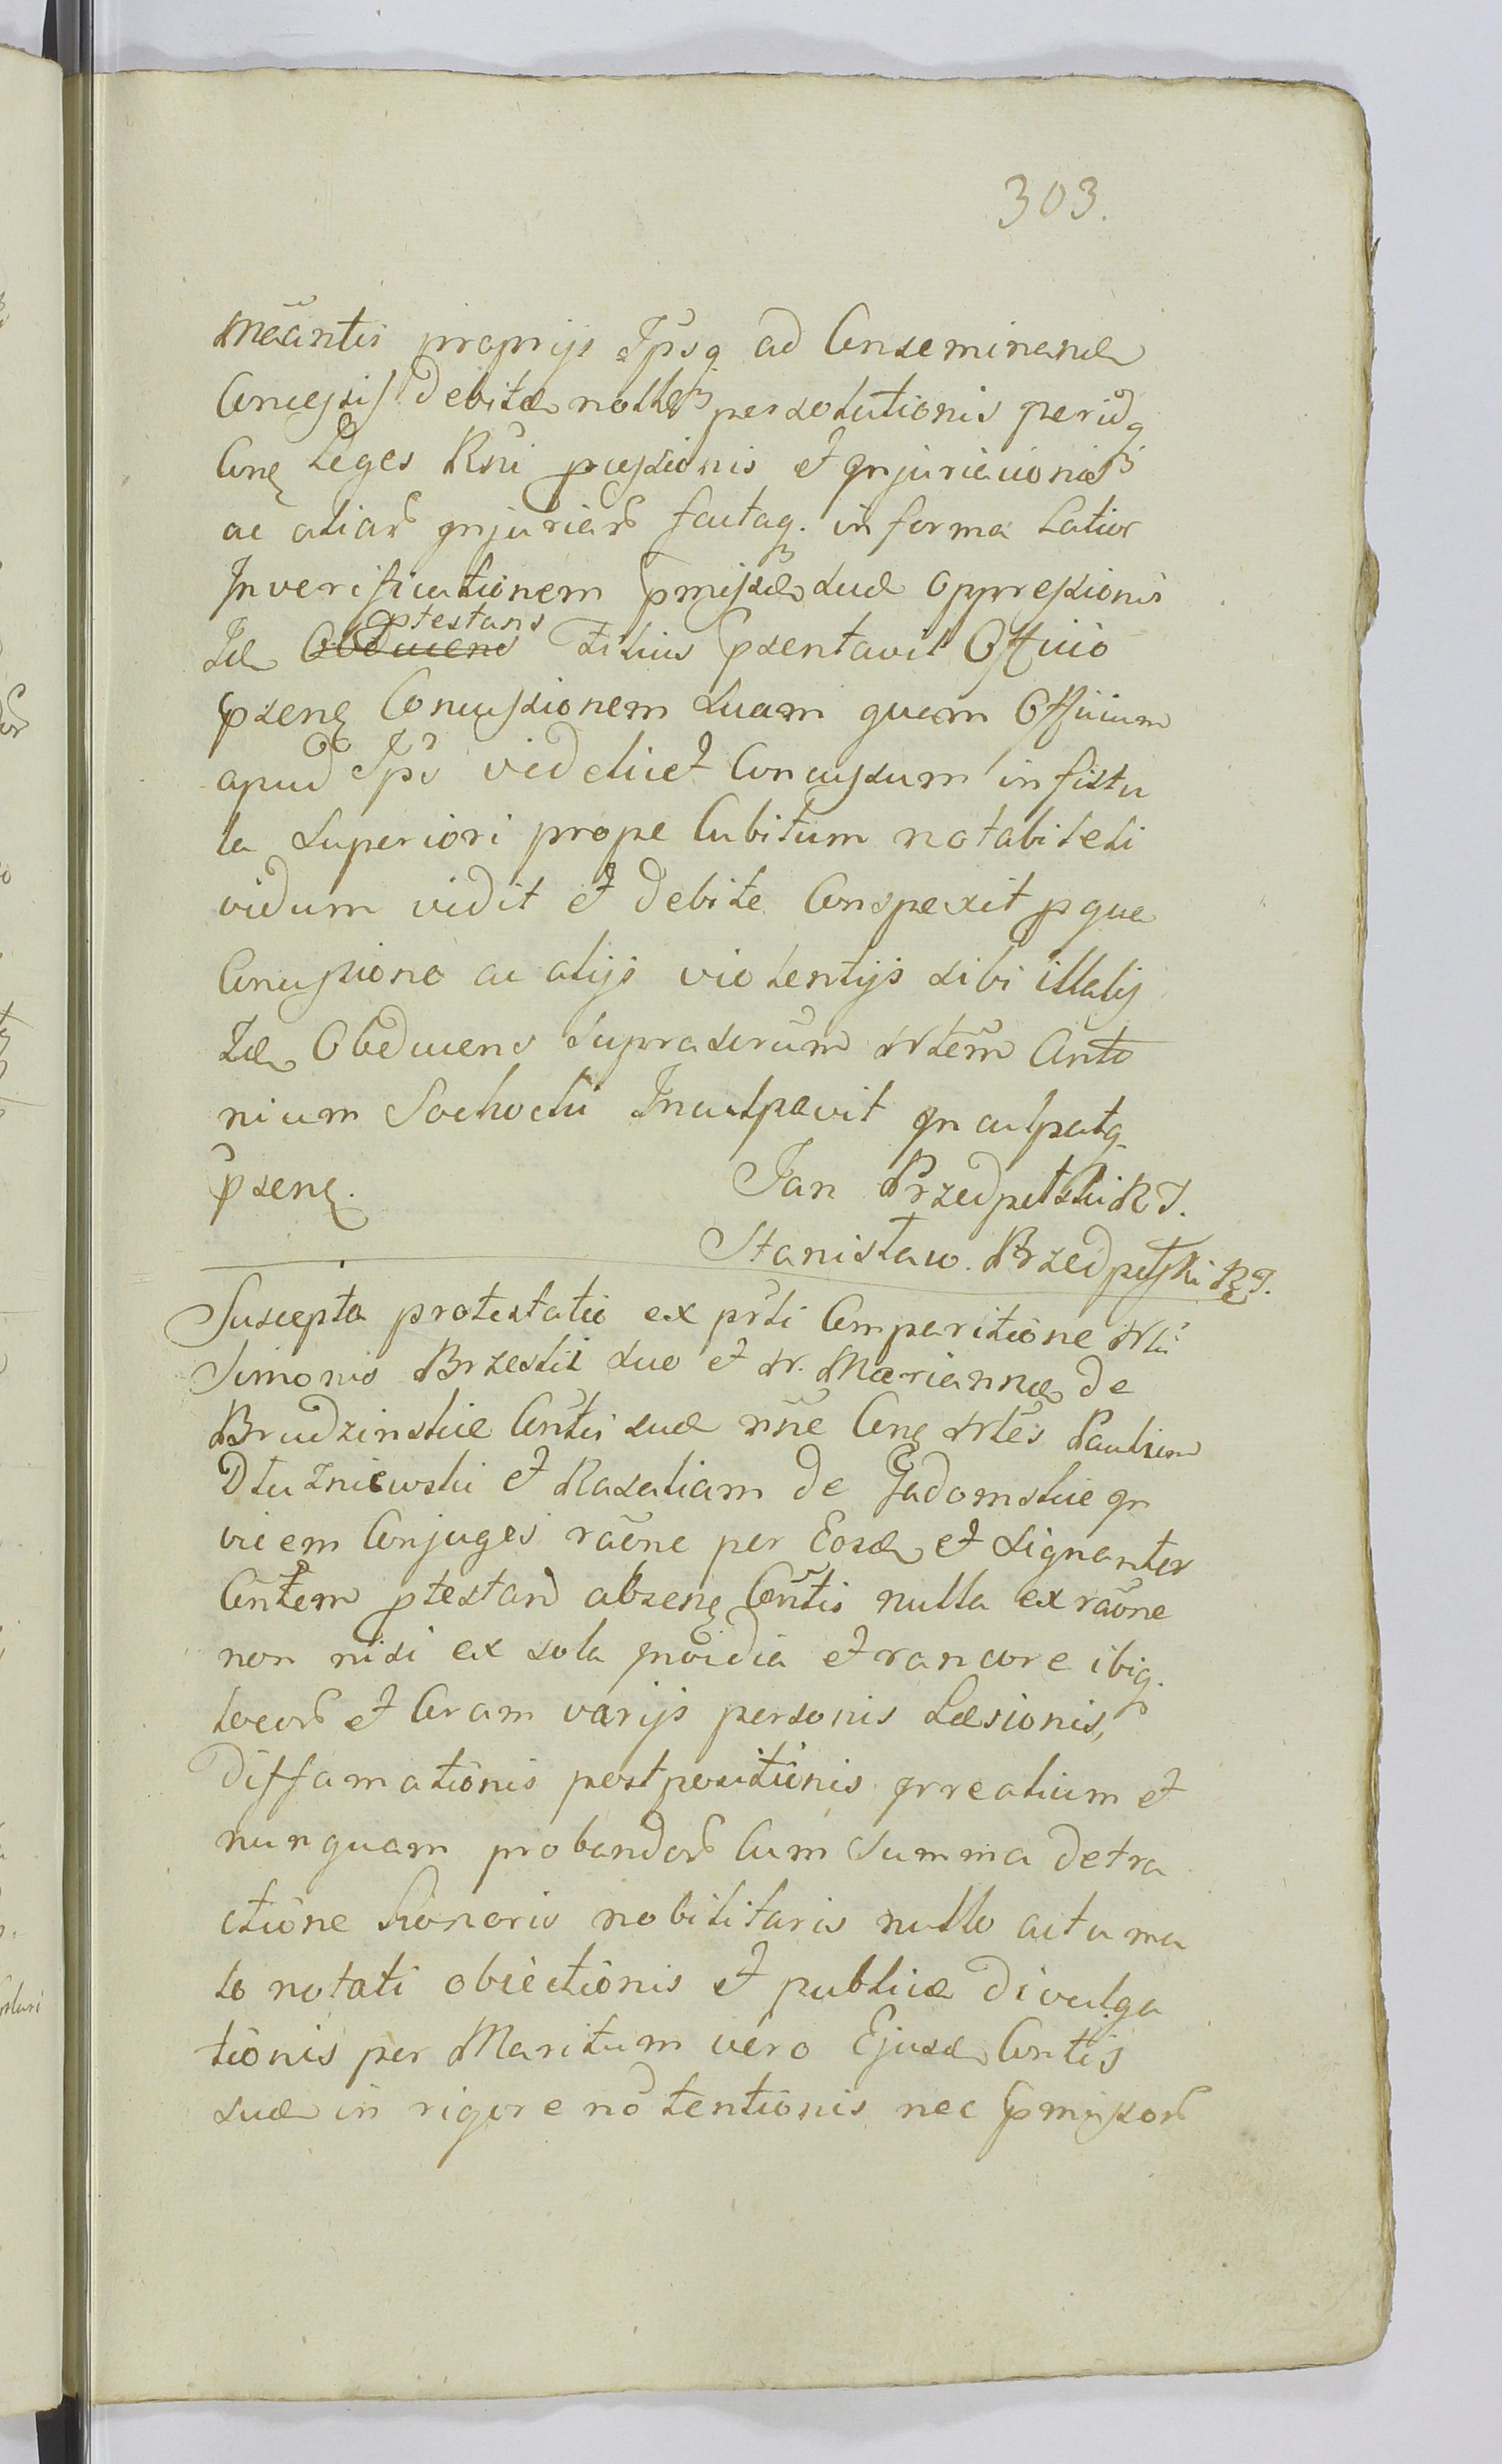 303.
Mãantis proprijs Ipsq ad Conseminand
Concessis debitæ nolles persolutionis peridq
Cone Leges Rñi pcussionis et Injuriaõnis
ac aliar Injuriar factaq. in forma Latior
In verificationem pmissæ suæ oppressionis
Id ptestans Filius psentavit Officio
psene Concussionem suam quam Officium
apud Ips videlicet Concussum in fistu
la superiori prope Cubitum notabile li
vidum vidit et debite Conspexit p qua
Concussione ac alijs violentijs sibi illatis
Id Obducens suprascrum Nlem Anto
nium Sochocki Inculpavit Inculpatq
psene. Jan Przedpełski R T.
Stanisław. Przedpełski R T.
Suscepta protestatio ex psti Comparitione Nlis
Simonis Brzeski suo et N. Mariannæ de
Brudzinskie Cõntis suæ nñe Cone Nles Paulum
Dłużniewski et Rosaliam de Gadomskie In
vicem Conjuges raõne per Eosd et signanter
Cõntem ptestand absene Cõntis nulla ex raõne
non nisi ex sola Invidia et rancore ibiq.
locor et Coram varijs personis Læsionis,
diffamationis postpositionis Irrealium et
nunquam probandor Cum Summa detra
ctione honoris nobilitaris nullo actu ma
lo notati obiectionis et publicæ divulga
tionis per Maritum vero Ejusd Contis
suæ in rigore nõ tentionis nec pmissor